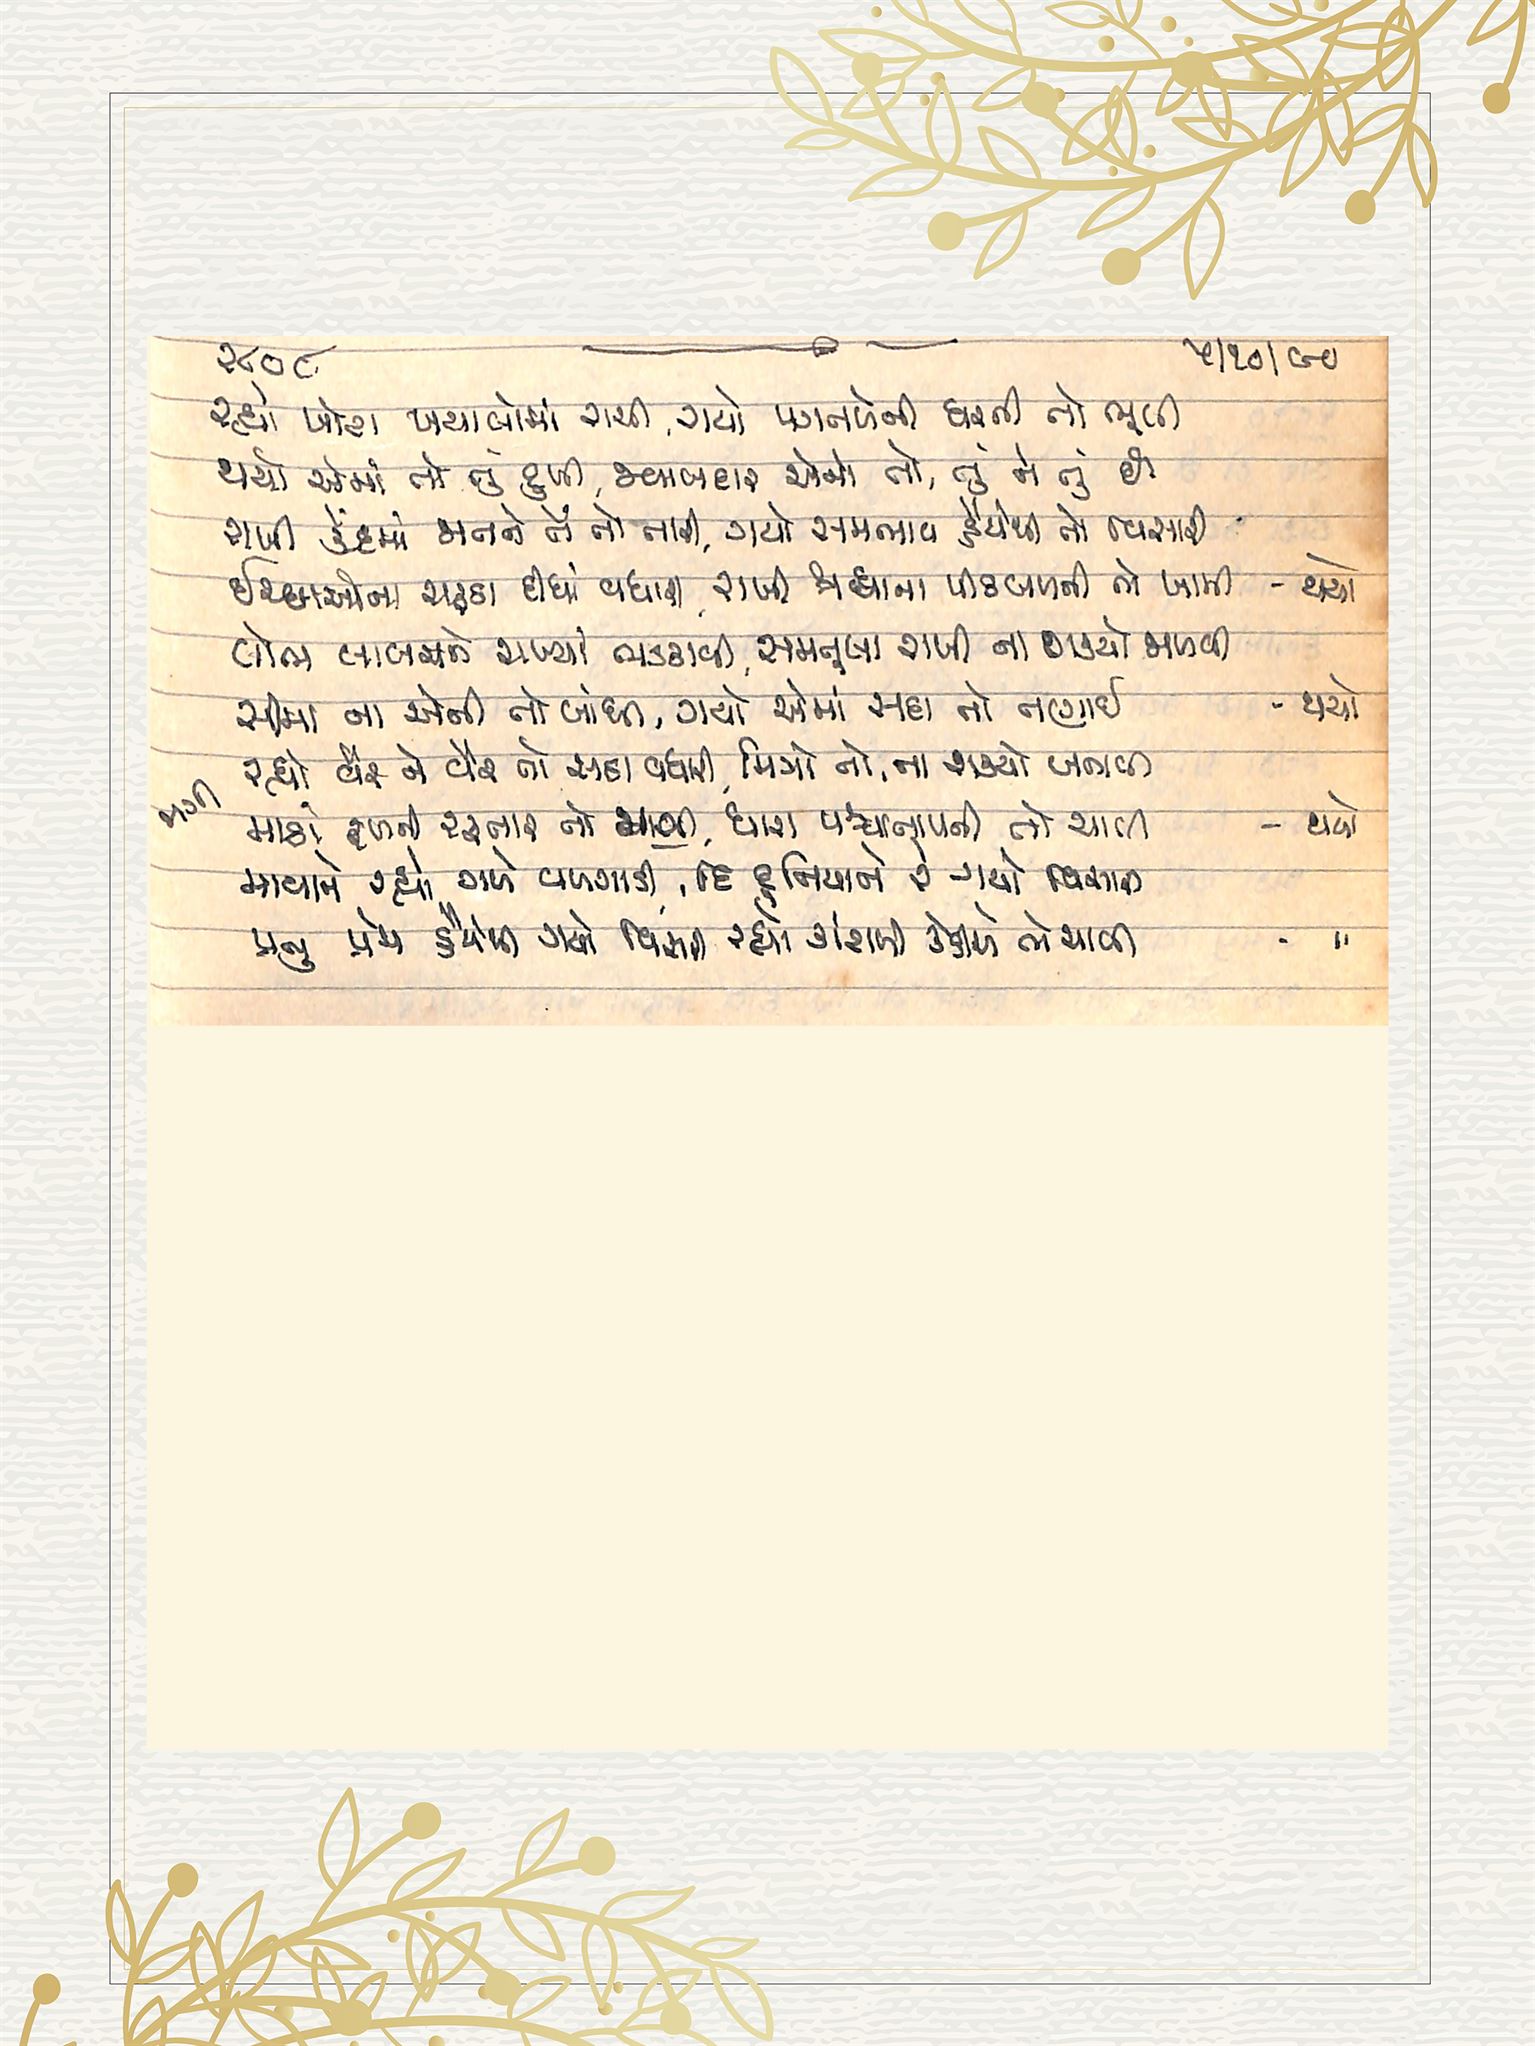 ૨૮૦૮ ૫/૧૦/૯૦
રહ્યો ખોટા ખયાલોમાં રાચી, ગયો પગતળેની ધરતી તો ભૂલી
થયો એમાં તો તું દુઃખી, જવાબદાર એનો તો, તું ને તું છે
રાખી કેંદ્રમાં મનને તેં તો તારી, ગયો સમભાવ હૈયેથી તો વિસારી
ઈચ્છાઓના ચરૂઠા દીધાં વધારી, રાખી શ્રધ્ધાના પીઠબળની તો ખામી - થયો
લોભ લાલસાને રાખ્યાં ભડકાવી, સમતુલા રાખી ના શક્યો મળવી
સીમા ના એની તો બાંધી, ગયો એમાં સદા તો તણાઈ - થયો
રહ્યો વૈર ને વૈર તો સદા વધારી, મિત્રો તો, ના શક્યો બનાવી
માઠાં ફળની રફતાર તો મળી, ધારા પશ્ચાતાપની તો ચાલી - થયો
માયાને રહ્યો ગળે વળગાડી, દિ દુનિયાને રે ગયો વિસારી
પ્રભુ પ્રેમ હૈયેથી ગયો વિસારી રહ્યો કેડીએ તો ચાલી - "